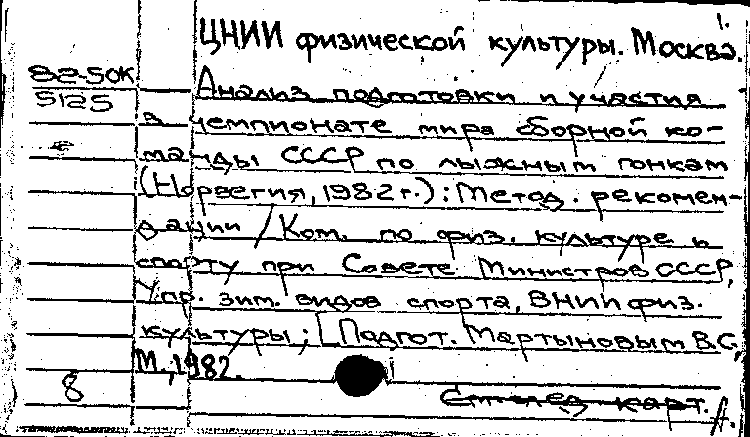 1.
ЦНИИ физической культуры. Москва.
82-5ОК
5125
Анализ подготовки и участия
в чемпионате мира сборной ко-
манды СССР по лыжным гонкам
(Норвегия, 1982 г.): Метод. рекомен-
дации / Ком. по физ. культуре и
спорту при Совете Министров СССР,
Упр. зим. видов спорта, ВНИИ физ.
культуры; [Подгот. Мартыновым В.С.
М., 1982.
8
карт.